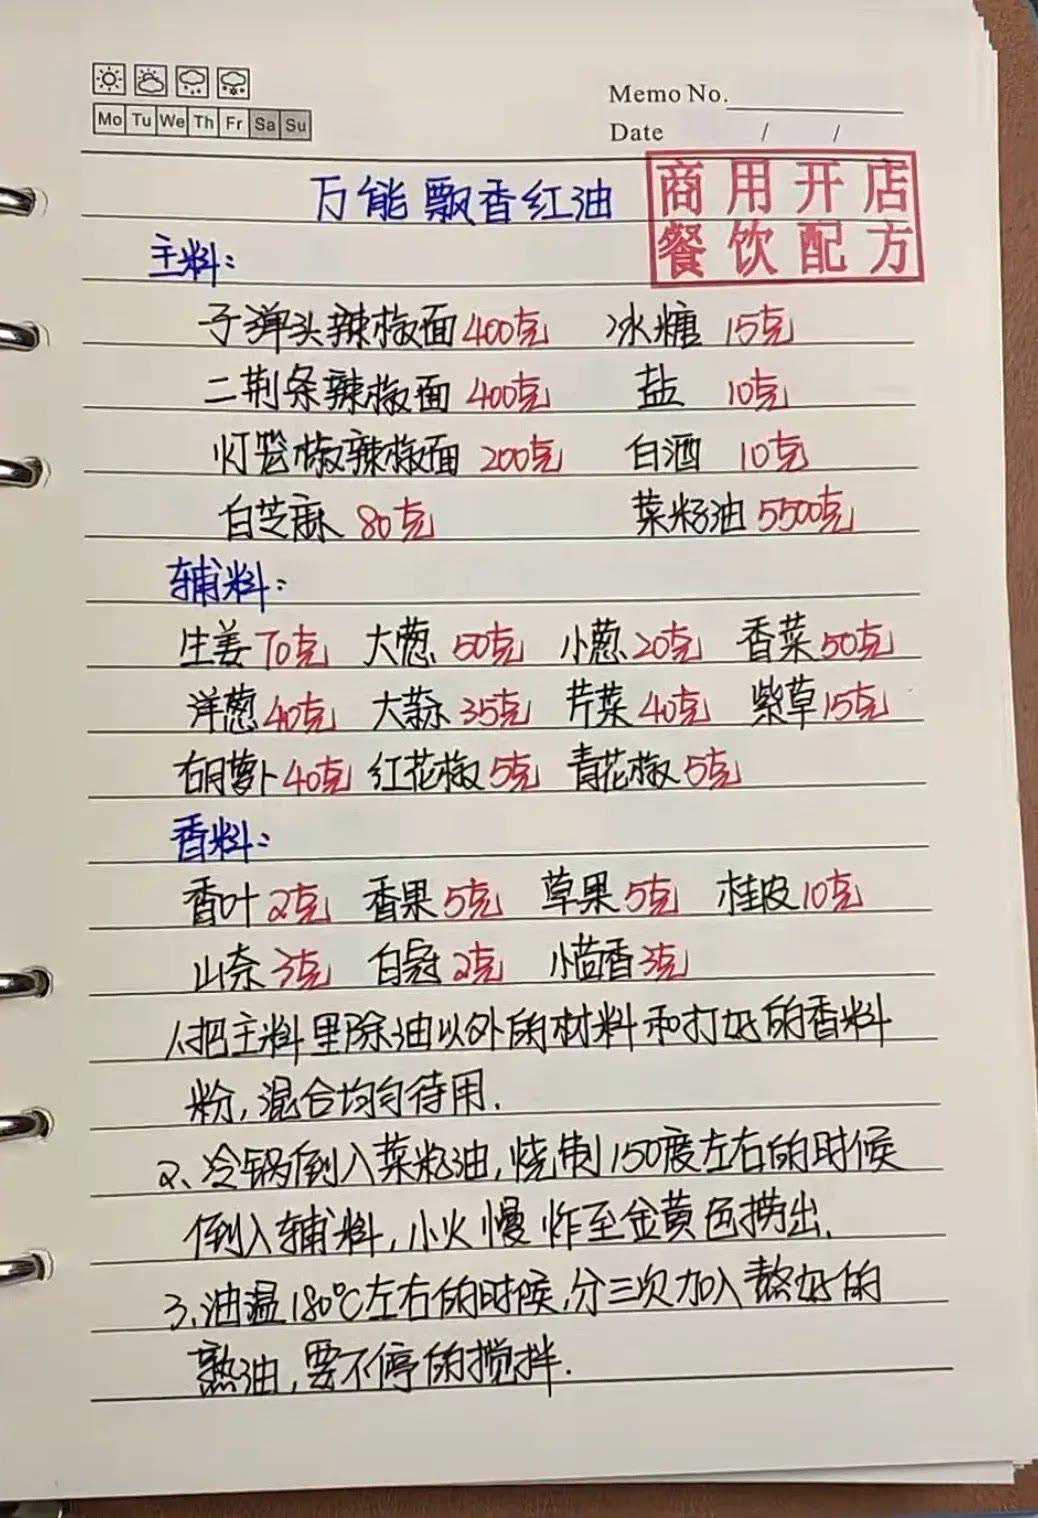 Mo Tu We Th Fr Sa Su
Memo No.
Date / /
万能飘香红油
商用开店
餐饮配方
主料:
子弹头辣椒面400克 冰糖 15克
二荆条辣椒面400克 盐 10克
灯笼椒辣椒面 200克 白酒 10克
白芝麻 80克 菜籽油5500克
辅料:
生姜70克 大葱50克 小葱20克 香菜50克
洋葱40克 大蒜35克 芹菜40克 紫草15克
胡萝卜40克 红花椒5克 青花椒5克
香料:
香叶2克 香果5克 草果5克 桂皮10克
山奈3克 白冠2克 小茴香3克
1、把主料里除油以外的材料和打好的香料
粉,混合均匀待用.
2、冷锅倒入菜籽油,烧制150度左右的时候
倒入辅料,小火慢炸至金黄色捞出.
3、油温180℃左右的时候,分三次加入熬好的
熟油,要不停的搅拌.